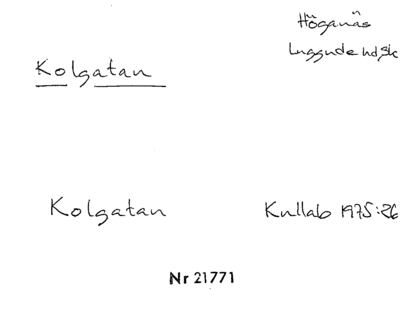 Höganäs
Luggude hd, Sk
Kolgatan
Kolgatan
Kullab 1975:26
Nr 21771